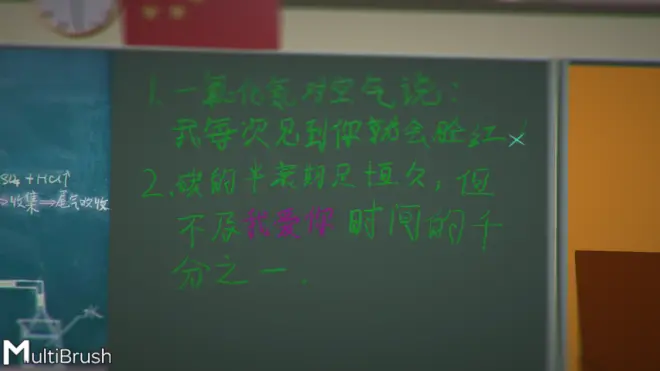 1.一氧化氮对空气说:
我每次见到你就会脸红!
2.碳的半衰期足恒久,但
不及我爱你时间的千
分之一.
SO₄+HCl↑
→收集→尾气吸收
MultiBrush